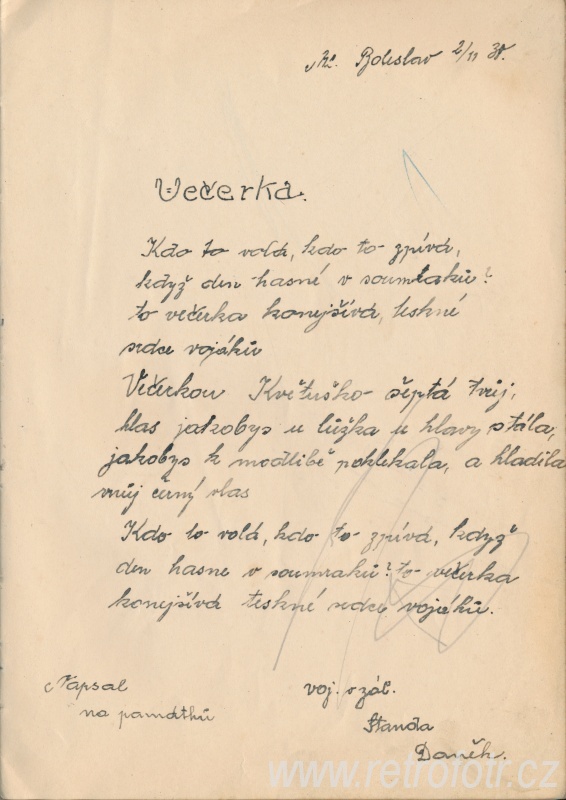 Ml. Boleslav 2/11 38.
Večerka.
Kdo to volá, kdo to zpívá,
když den hasné v soumraků?
to večerka konejšívá, teskné
srdce vojáků
Večerkou Květuško šeptá tvůj,
hlas jakobys u lůžka u hlavy stála,
jakobys k modlibě poklekala, a hladila
můj černý vlas
Kdo to volá, kdo to zpívá, když
den hasne v soumraků? to večerka
konejšívá teskné srdce vojáků.
Napsal
na památků
voj. v zál.
Standa
Daněk.
www.retrofotr.cz